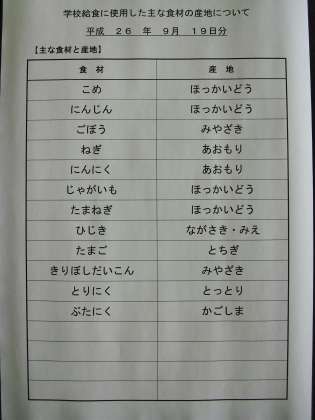 学校給食に使用した主な食材の産地について
平成 26 年 9月 19日分
【主な食材と産地】
食 材 産 地
こめ ほっかいどう
にんじん ほっかいどう
ごぼう みやざき
ねぎ あおもり
にんにく あおもり
じゃがいも ほっかいどう
たまねぎ ほっかいどう
ひじき ながさき・みえ
たまご とちぎ
きりぼしだいこん みやざき
とりにく とっとり
ぶたにく かごしま